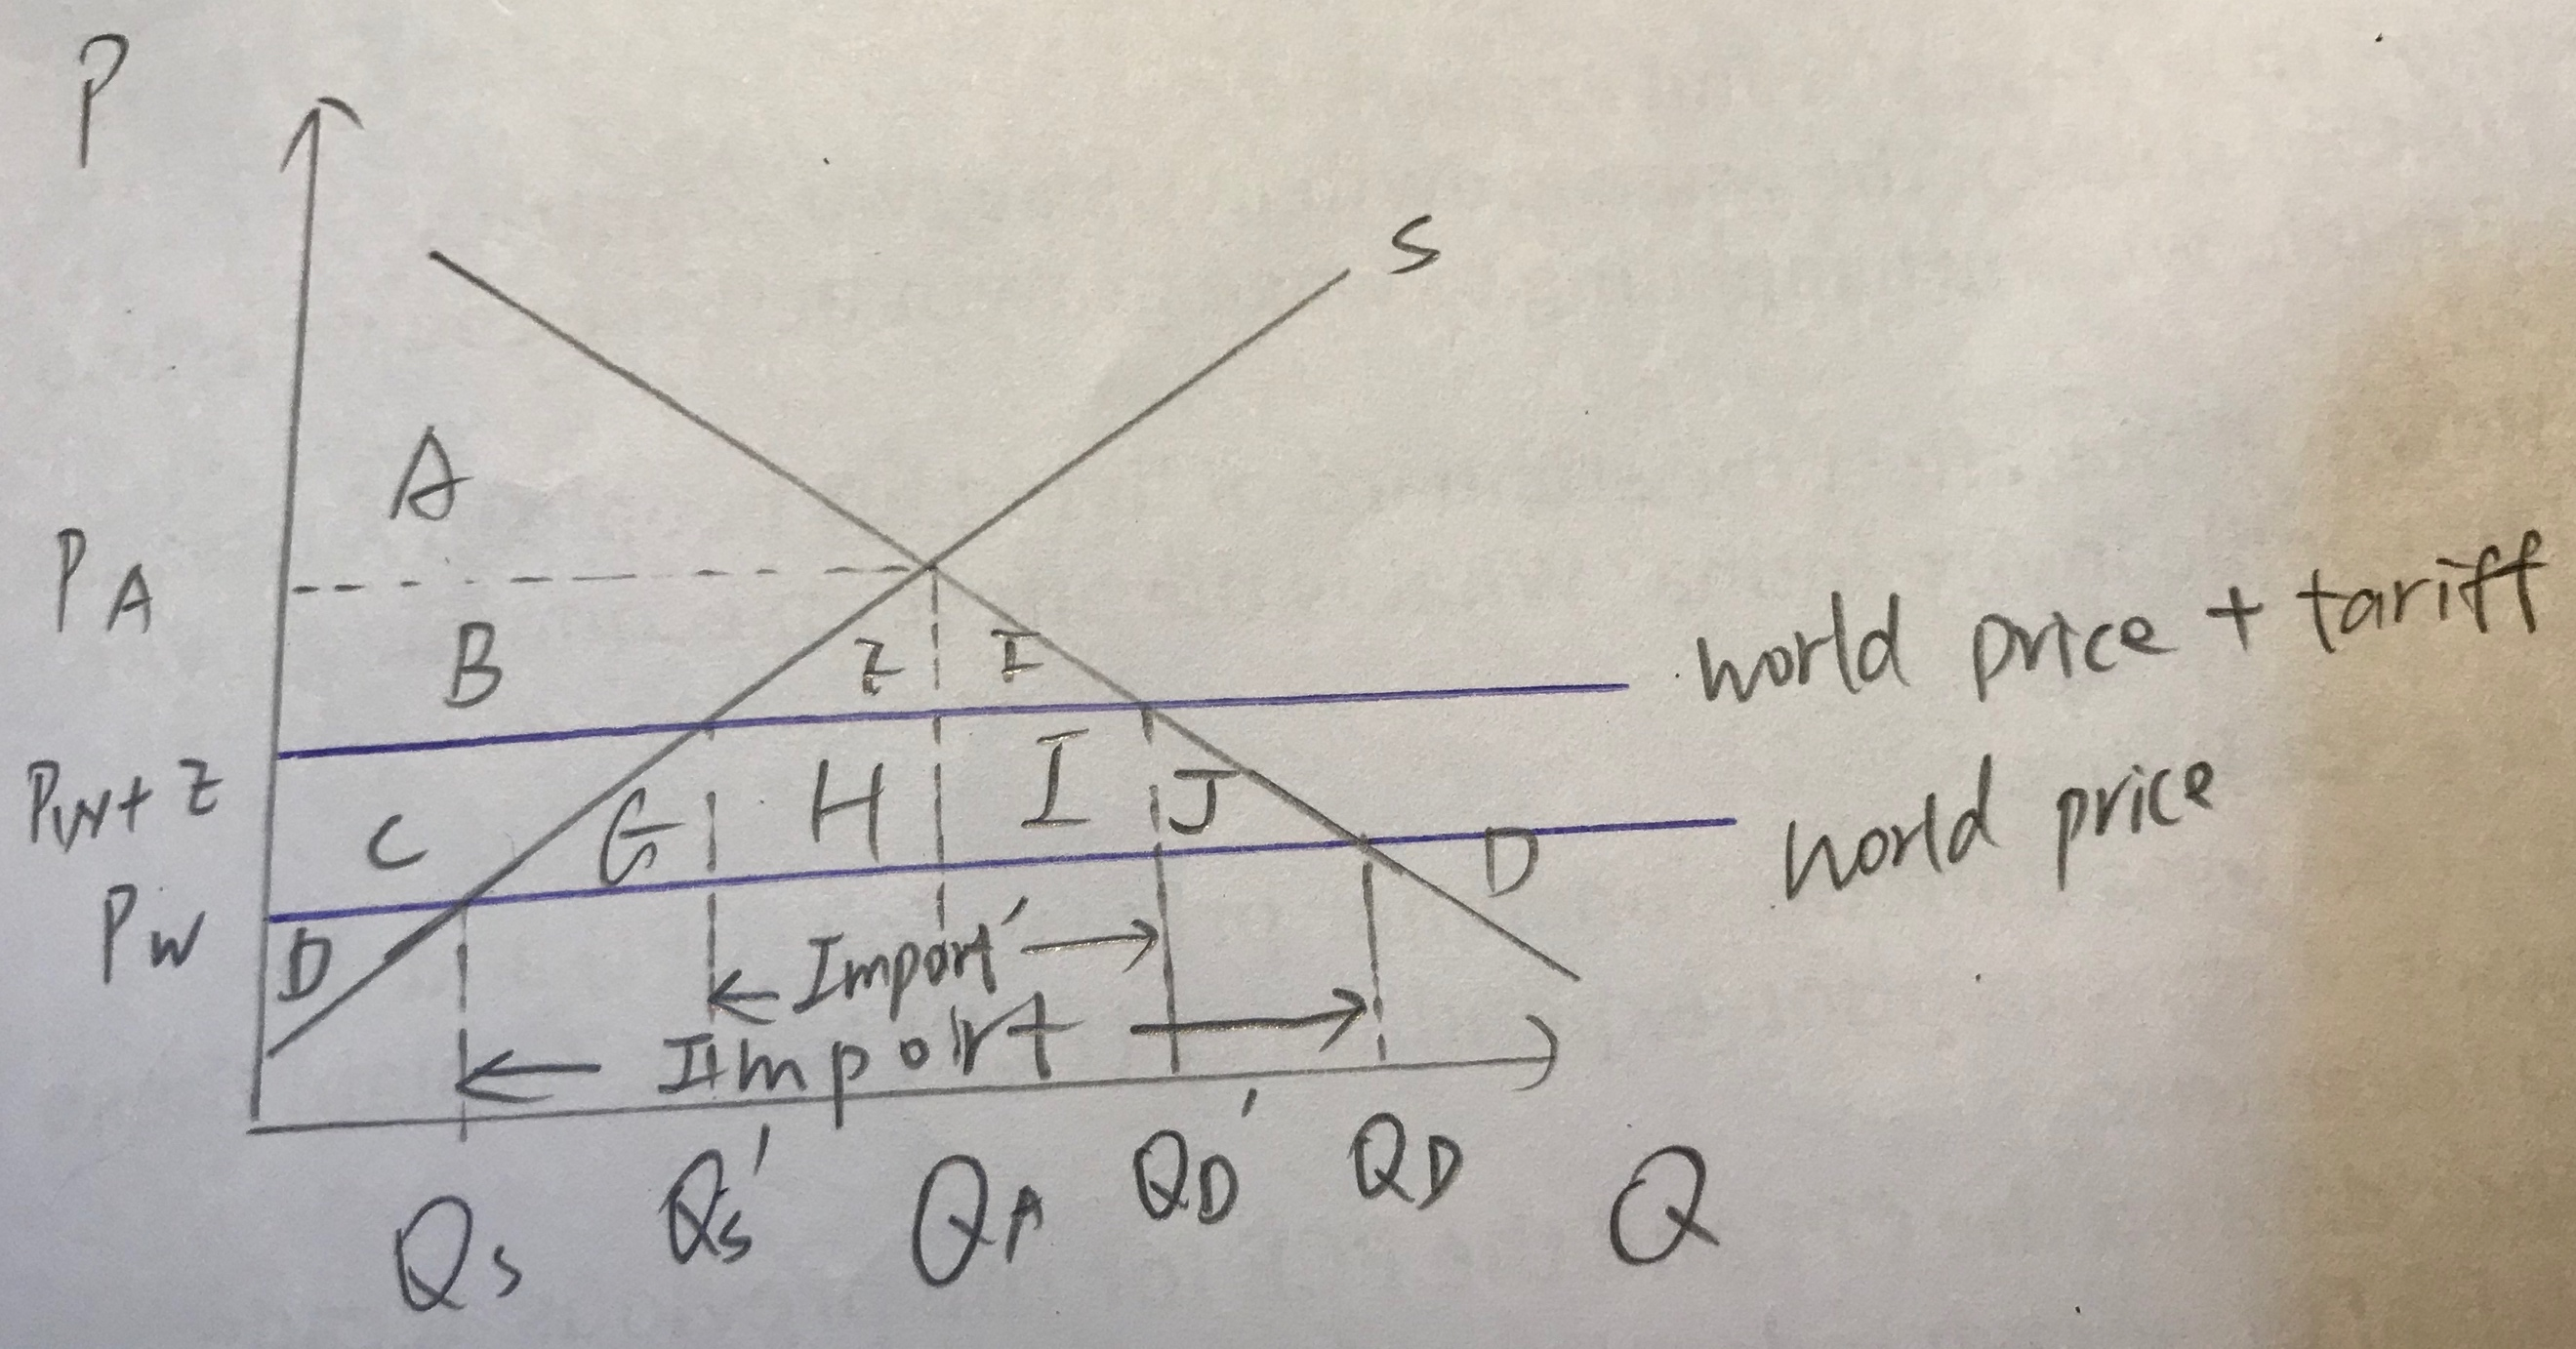 P
S
A
PA
B
Z I
world price + tariff
Pw+ Z
C G H I J
world price
D
Pw
D
Import'
Import
Qs Qs' QA QD' QD Q